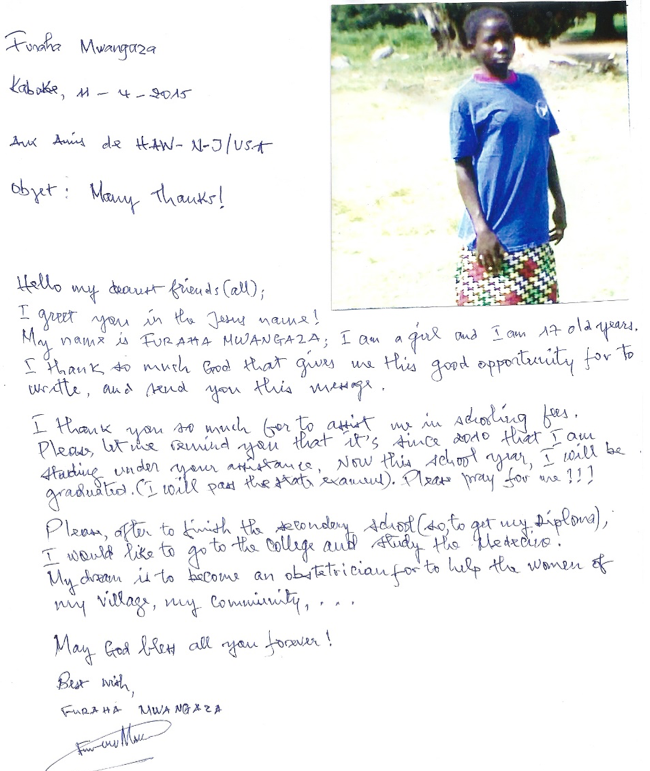 Furaha Mwangaza
Kabake, 11 - 4 - 2015
Aux Amis de HAW- N-J/USA
Objet : Many Thanks!
Hello my dearest friends (all);
I greet you in the Jesus name!
My name is FURAHA MWANGAZA; I am a girl and I am 17 old years.
I thank so much God that gives me this good opportunity for to
writte, and send you this message.
I thank you so much for to assist me in schooling fees.
Please, let me remind you that it's since 2010 that I am
studing under your assistance. Now this school year, I will be
graduated. (I will pass the state examen). Please pray for me !!!
Please, after to finish the secondary school (so, to get my Diploma),
I would like to go to the college and study the Medecine.
My dream is to become an obstetrician for to help the women of
my village, my community, . . .
May God bless all you forever !
Best wish,
FURAHA MWANGAZA